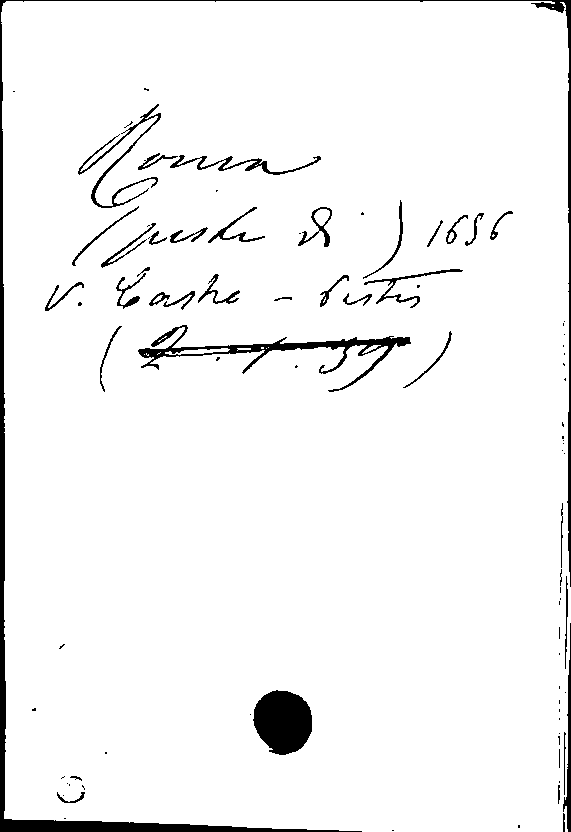 Roma
(peste di) 1656
V. Castro - Pestis
(2. 1. 39)